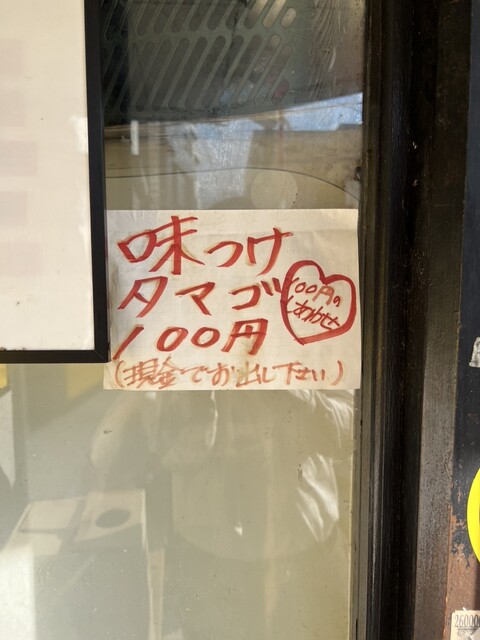 味つけ
タマゴ
100円
(現金でお出し下さい)
100円の
しあわせ